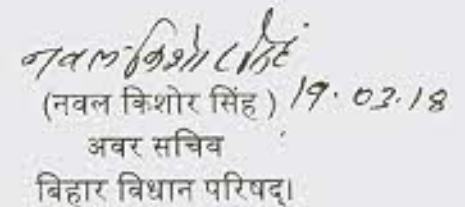 नवल किशोर सिंह
(नवल किशोर सिंह ) 19.03.18
अवर सचिव
बिहार विधान परिषद्।